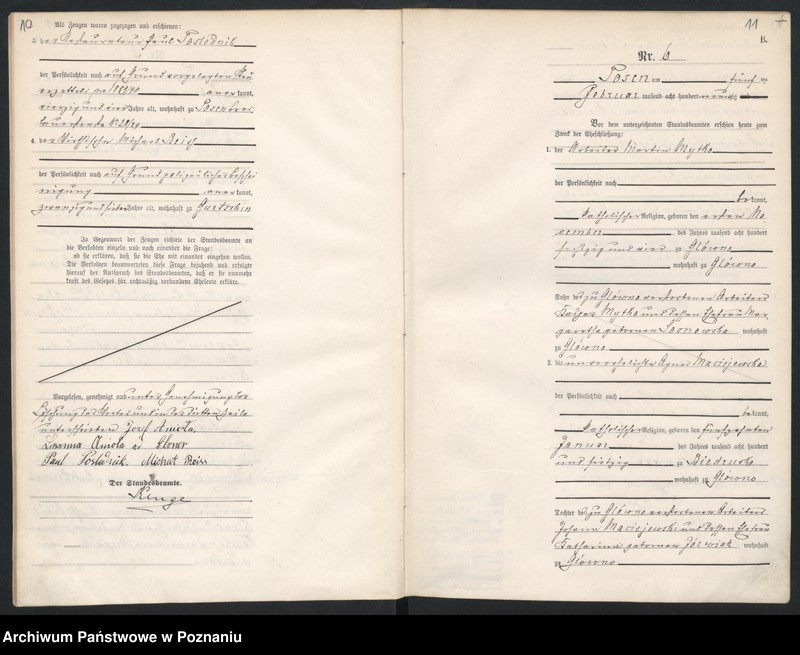 10
Als Zeugen waren zugezogen und erschienen:
3. der Restaurateur Paul Poslednik
der Persönlichkeit nach auf Grund vorgelegten
1889/90 anerkannt,
vierzig und vier Jahre alt, wohnhaft zu Posen
4. der Michael Reiss
der Persönlichkeit nach auf Grund polizeilicher Beschei
nigung anerkannt,
zwanzig und sieben Jahre alt, wohnhaft zu Gurtschin
In Gegenwart der Zeugen richtete der Standesbeamte an
die Verlobten einzeln und nach einander die Frage:
ob sie erklären, daß sie die Ehe mit einander eingehen wollen.
Die Verlobten beantworteten diese Frage bejahend und erfolgte
hierauf der Ausspruch des Standesbeamten, daß er sie nunmehr
kraft des Gesetzes für rechtmäßig verbundene Eheleute erkläre.
Vorgelesen, genehmigt und unter Genehmigung der
Löschung des Wortes und in der dritten Zeile
unterschrieben Józef Anioła.
Zuzanna Anioła
Paul Poslednik. Michał Reiss
Der Standesbeamte.
11
B.
Nr. 6
Posen am fünf ten
Februar tausend acht hundert neunzig
Vor dem unterzeichneten Standesbeamten erschien heute zum
Zweck der Eheschließung:
1. der Arbeiter Martin Mytko
der Persönlichkeit nach
bekannt,
katholischer Religion, geboren den ersten No
vember des Jahres tausend acht hundert
sechszig und vier zu Glówno
, wohnhaft zu Glówno
Sohn des zu Glówno verstorbenen Arbeiters
Kasper Mytko und dessen Ehefrau Mar
garetha geborenen Sosnowska wohnhaft
zu Glówno
2. die unverehelichte Agnes Maciejewska
der Persönlichkeit nach
bekannt,
katholischer Religion, geboren den fünfzehnten
Januar des Jahres tausend acht hundert
und siebzig zu Biedrusko
, wohnhaft zu Glówno
Tochter des zu Glówno verstorbenen Arbeiters
Johann Maciejewski und dessen Ehefrau
Katharina geborenen Józwiak wohnhaft
zu Glówno
Archiwum Państwowe w Poznaniu